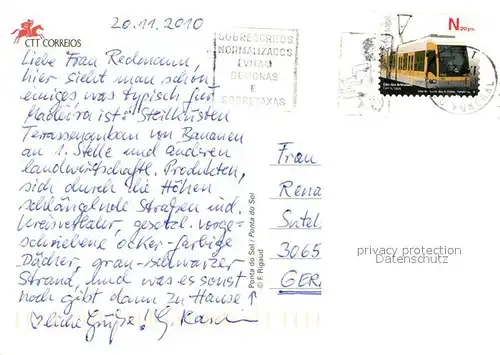 20.11.2010
CTT CORREIOS
SOBRESCRITOS
NORMALIZADOS
EVITAM
DEMORAS
E
SOBRETAXAS
N 20 gr.
FUNCHAL
Liebe Frau Redmann,
hier sieht man schön
einiges was typisch für
Madeira ist: Steilküsten
Terrassenanbau von Bananen
an 1. Stelle und anderen
landwirtschaftl. Produkten,
sich durch die Höhen
schlängelnde Straßen incl.
Kreisverkehr, gesetzl. vorge-
schriebene ocker-farbige
Dächer, grau-schwarzer
Strand, und was es sonst
noch gibt dann zu Hause
liche Grüße! G.
Ponta do Sol / Ponta do Sol
© F. Rigaud
Frau
Rena
3065
GER
privacy protection
Datenschutz